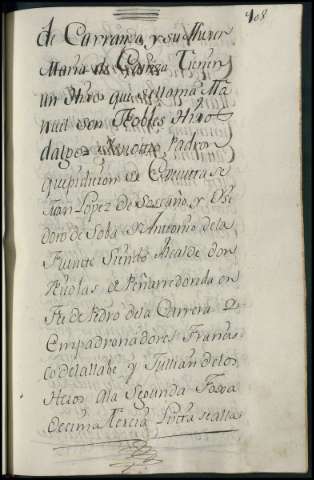 108
de Carranza, y su Muxer
Maria de Tienen
un Hixo que se llama Ma
nuel son Nobles Hixo
dalgos Notorios, Padron
que hicieron de Concetta de
Juan Lopez de Solorzano, y
doro de Soba Sr Antonio de la
Fuente Siendo Alcalde don
Nicolas de Peñarredonda en
Fee de Pedro de la Carrera
Empadronadores Francis
co del Allabe y Jullian de los
Heios a la Segunda Foxa
Decima tercia Linea se alla